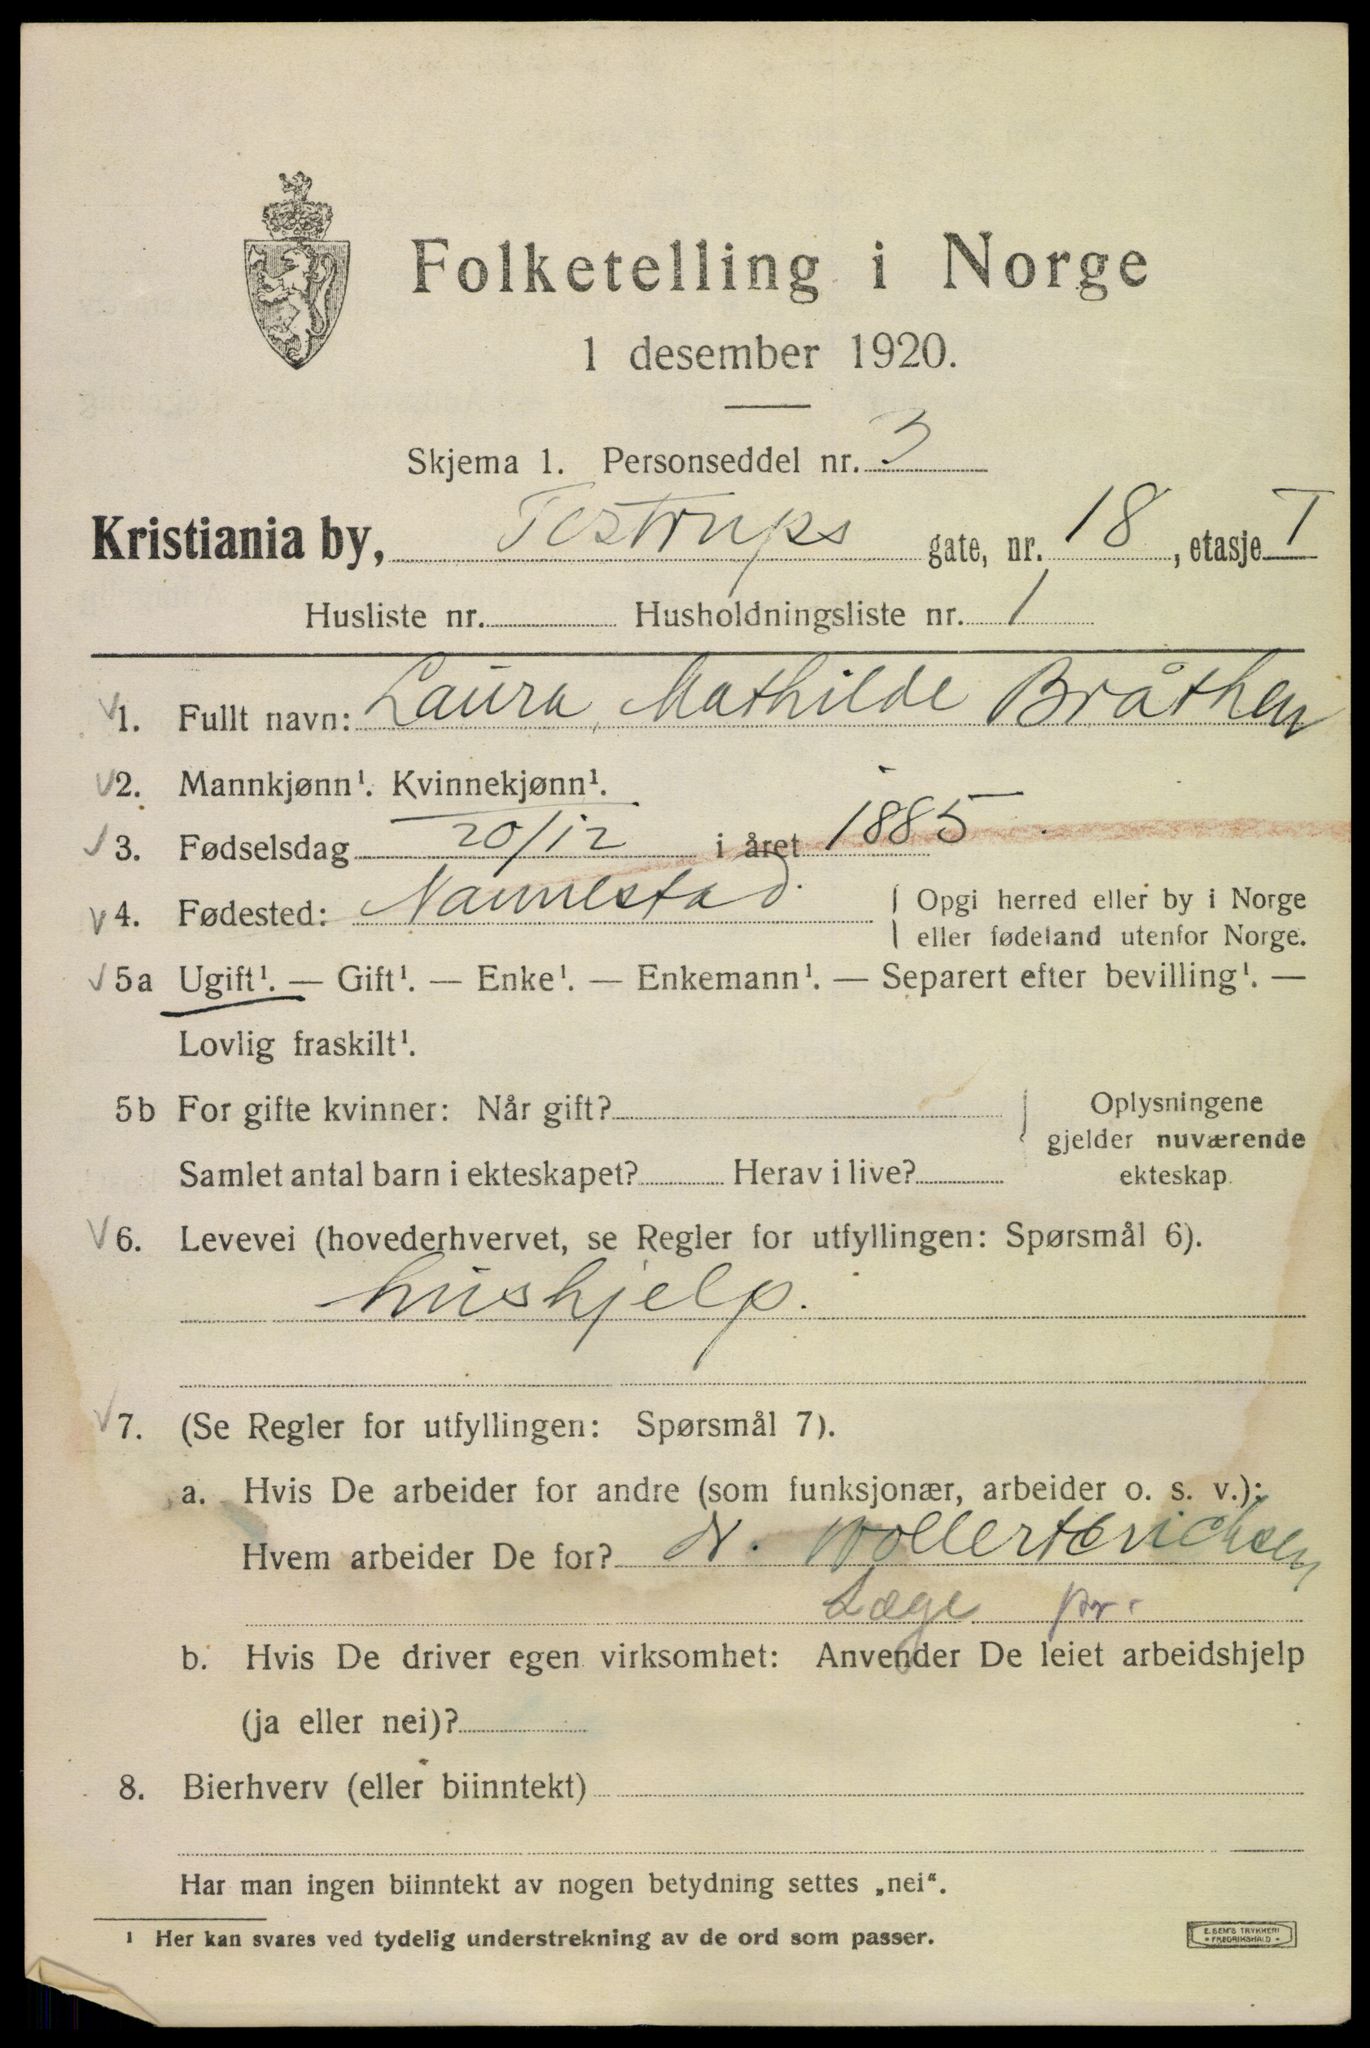 Folketelling i Norge
1 desember 1920.
Skjema 1. Personseddel nr. 3
Kristiania by, Testrups gate, nr. 18, etasje I
Husliste nr. Husholdningsliste nr. 1
1. Fullt navn: Laura Mathilde Bråthen
2. Mannkjønn¹. Kvinnekjønn¹.
3. Fødselsdag 20/12 i året 1885
4. Fødested: Nannestad. Opgi herred eller by i Norge
eller fødeland utenfor Norge.
5a Ugift¹. — Gift¹. — Enke¹. — Enkemann¹. — Separert efter bevilling¹. —
Lovlig fraskilt¹.
5b For gifte kvinner: Når gift? Oplysningene
gjelder nuværende
Samlet antal barn i ekteskapet? Herav i live? ekteskap.
6. Levevei (hovederhvervet, se Regler for utfyllingen: Spørsmål 6).
hushjelp.
7. (Se Regler for utfyllingen: Spørsmål 7).
a. Hvis De arbeider for andre (som funksjonær, arbeider o. s. v.):
Hvem arbeider De for? N. Wollert Erichsen
Læge pr.
b. Hvis De driver egen virksomhet: Anvender De leiet arbeidshjelp
(ja eller nei)?
8. Bierhverv (eller biinntekt)
Har man ingen biinntekt av nogen betydning settes „nei“.
¹ Her kan svares ved tydelig understrekning av de ord som passer.
E. SEM'S TRYKKERI
FREDRIKSHALD